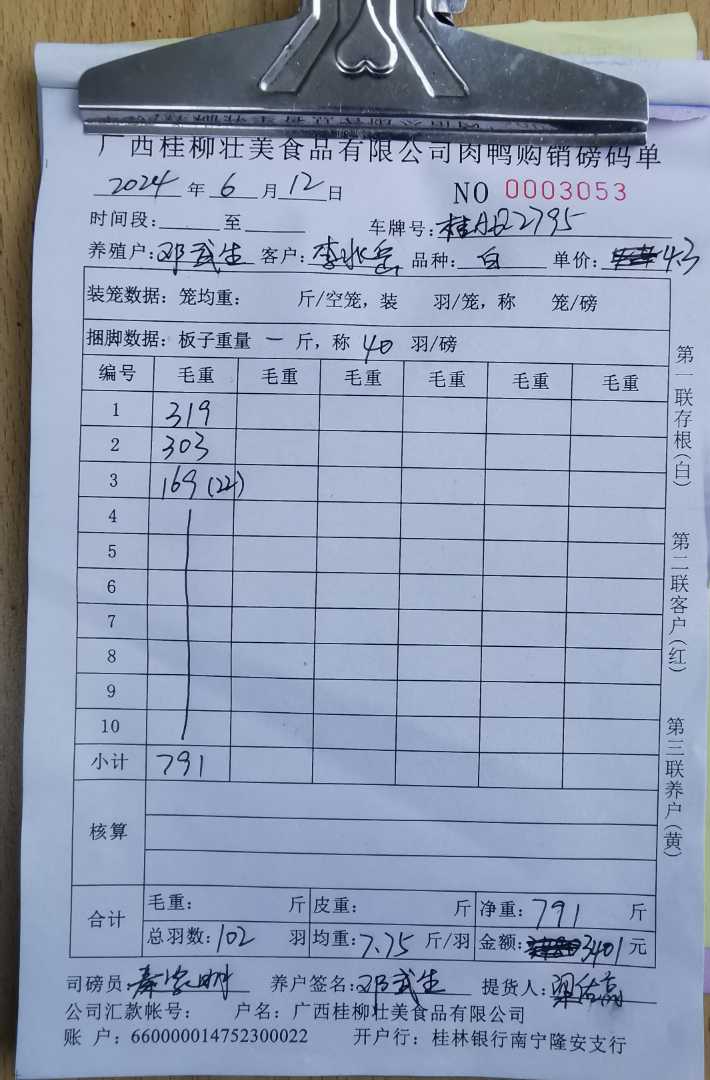 广西桂柳壮美食品有限公司肉鸭购销磅码单
2024 年 6 月 12 日 NO 0003053
时间段: 至 车牌号: 桂AQ2795
养殖户: 邓武生 客户: 李兆岳 品种: 白 单价: 4.3
装笼数据: 笼均重: 斤/空笼, 装 羽/笼, 称 笼/磅
捆脚数据: 板子重量 一 斤, 称 40 羽/磅
编号 毛重 毛重 毛重 毛重 毛重 毛重
1 319
2 303
3 169 (22)
4
5
6
7
8
9
10
小计 791
核算
合计 毛重: 斤 皮重: 斤 净重: 791 斤
总羽数: 102 羽 均重: 7.75 斤/羽 金额: 3401 元
司磅员: 养户签名: 邓武生 提货人:
公司汇款帐号: 户名: 广西桂柳壮美食品有限公司
账 户: 660000014752300022 开户行: 桂林银行南宁隆安支行
第一联存根(白)
第二联客户(红)
第三联养户(黄)